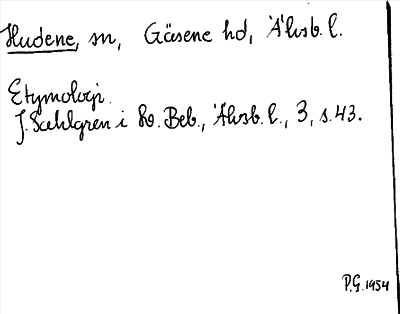 Hudene, sn, Gäsene hd, Älvsb. l.
Etymologi.
J. Sahlgren i Sv. Beb., Älvsb. l., 3, s. 43.
P.G. 1954